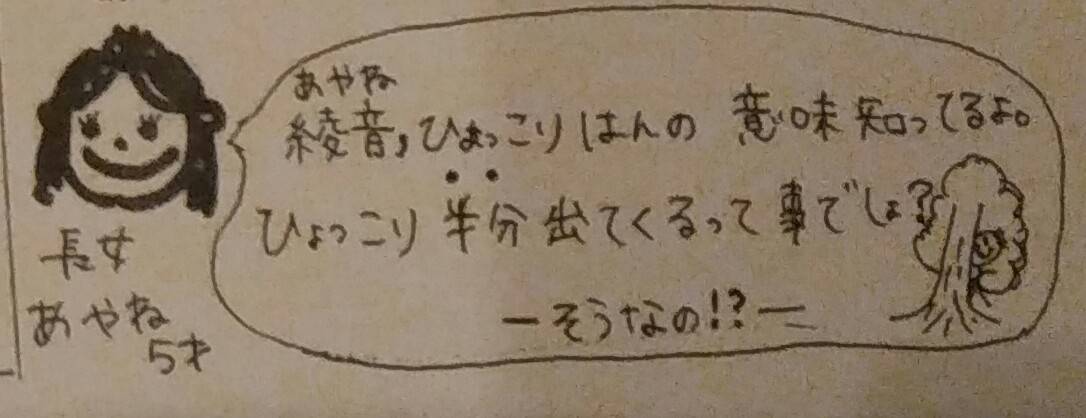 あやね
綾音，ひょっこりはんの意味知ってるよ。
ひょっこり半分出てくるって事でしょ？
ーそうなの!?ー
長女
あやね
5才